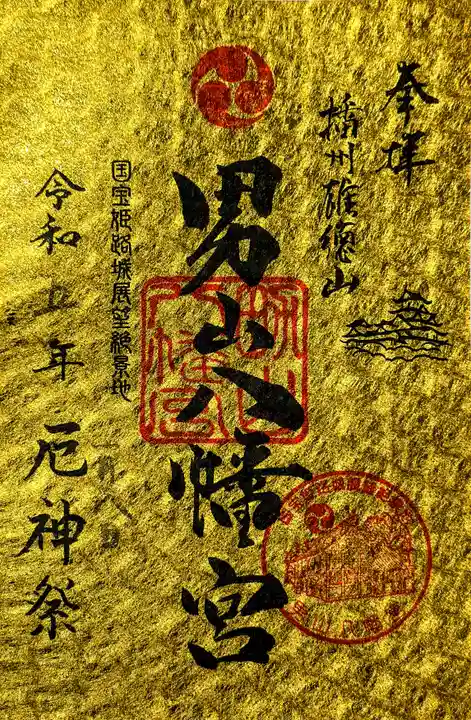 奉拝
播州雄徳山
男山八幡宮
国宝姫路城展望絶景地
令和五年 厄神祭